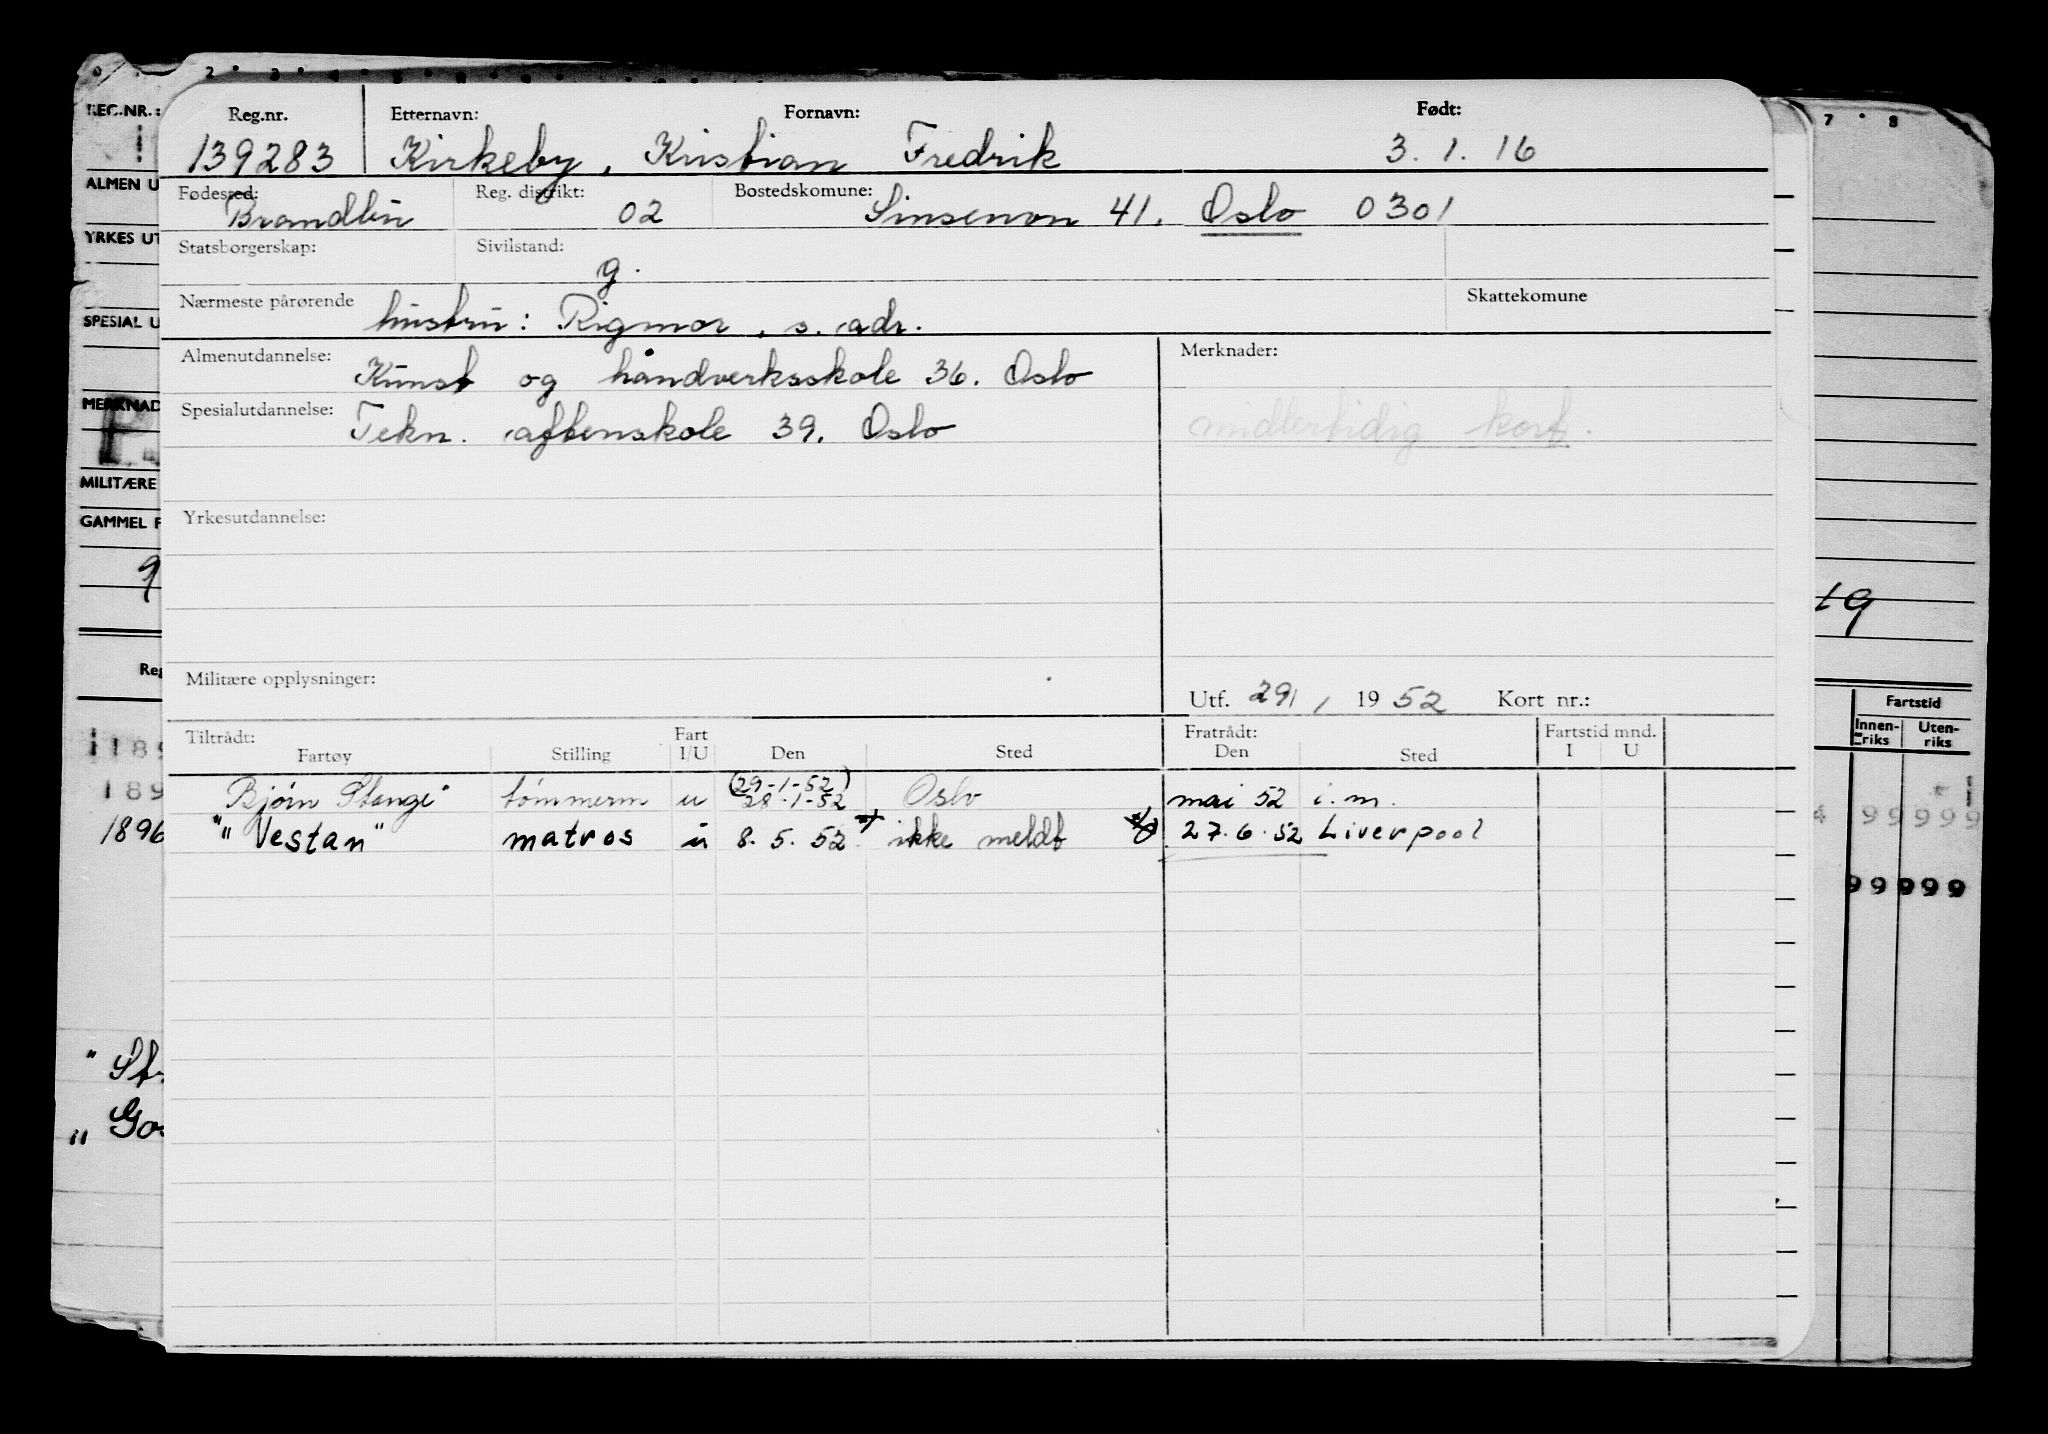 0 2 3 4 5
REG.NR.: Reg.nr. Etternavn: Fornavn: Født:
139283 Kirkeby, Kristian Fredrik 3. 1. 16
7 8
ALMEN U Fødested: Reg. distrikt: Bostedskomune:
02 Sinsenvn 41. Oslo 0301
YRKES UT Statsborgerskap: Sivilstand:
g.
Nærmeste pårørende Skattekomune
hustru: Rigmor, s. adr.
SPESIAL U
Almenutdannelse: Merknader:
Kunst og håndverksskole 36. Oslo
MERKNAD Spesialutdannelse:
Tekn. aftenskole 39. Oslo midlertidig kort.
MILITÆRE
GAMMEL F Yrkesutdannelse:
9
19
Reg Militære opplysninger:
Utf. 29/1 1952 Kort nr.:
Fartstid
Innen-riks Uten-riks
Tiltrådt: Fart Fratrådt: Fartstid mnd.
Fartøy Stilling I/U Den Sted Den Sted I U
(29-1-52)
189 Bjørn Stange" tømmerm u 28-1-52, Oslo mai 52 i.m.
1896 "Vestan" matros u 8. 5. 52 ikke meldt 27.6.52 Liverpool
4 99999
99999
" St.
" Go